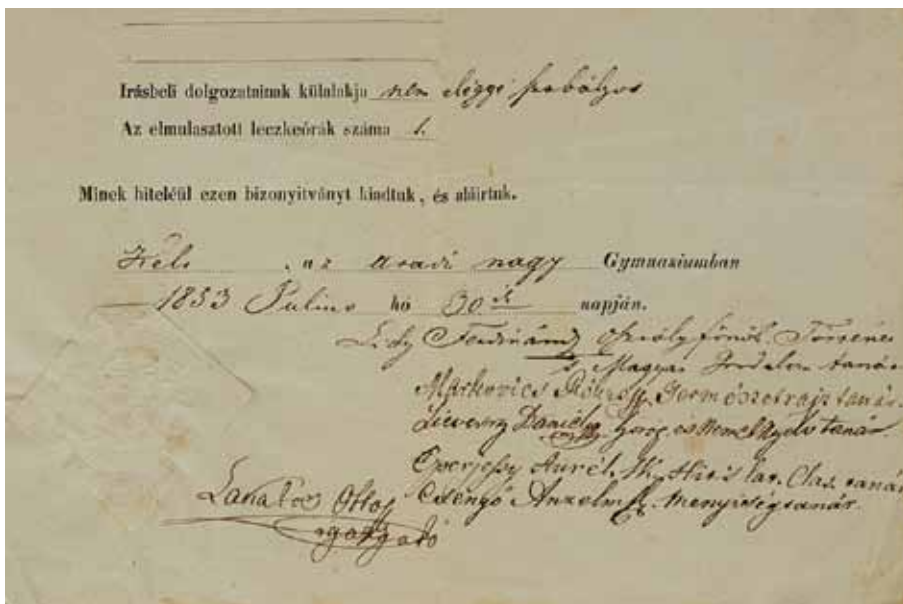 Irásbeli dolgozatainak külalakja nem eléggé szabályos
Az elmulasztott leczkeórák száma 1.
Minek hiteléül ezen bizonyitványt kiadtuk, és aláirtuk.
Kelt az aradi nagy Gymnasiumban
1853 Julius hó 30ik napján.
Ferdinánd osztályfőnök. Történet
s Magyar Irodalom tanár
Markovics természetrajz tanár.
Dániel görög és Német nyelv tanár
Eperjessy Aurél. tanár
Csengő Anzelm Menyiségtanár.
Lakatos Ottó
igazgató